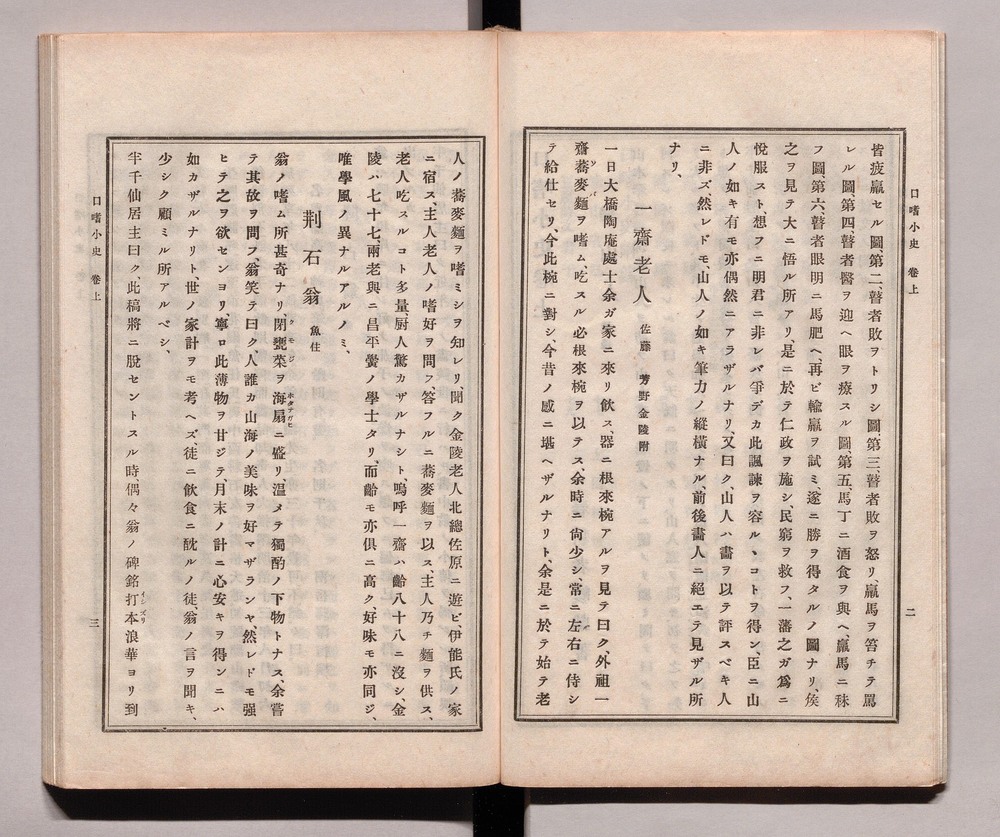 口嗜小史　卷上
二
皆疲羸セル圖第二、瞽者敗ヲトリシ圖第三、瞽者敗ヲ怒リ、羸馬ヲ笞チテ罵
レル圖、第四、瞽者醫ヲ迎ヘ眼ヲ療スル圖、第五、馬丁ニ酒食ヲ與ヘ、羸馬ニ秣
フ圖、第六、瞽者眼明ニ馬肥ヘ、再ビ輸羸ヲ試ミ、遂ニ勝ヲ得タルノ圖ナリ、侯
之ヲ見テ大ニ悟ル所アリ、是ニ於テ仁政ヲ施シ、民窮ヲ救フ、一藩之ガ爲ニ
悅服スト、想フニ明君ニ非レバ爭デカ此諷諫ヲ容ルヽコトヲ得ン、臣ニ山
人ノ如キ有モ亦偶然ニアラザルナリ、又曰ク、山人ハ畵ヲ以テ評スベキ人
ニ非ズ、然レドモ、山人ノ如キ筆力ノ縱橫ナル、前後畵人ニ絕エテ見ザル所
ナリ、
一齋老人　佐藤　芳野金陵附
一日大橋陶庵處士余ガ家ニ來リ飮ス、器ニ根來椀アルヲ見テ曰ク、外祖一
齋蕎麥麵ヲ嗜ム、吃スル必根來椀ヲ以テス、余時ニ尙少シ、常ニ左右ニ侍シ
ソバ
テ給仕セリ、今此椀ニ對シ、今昔ノ感ニ堪ヘザルナリト、余是ニ於テ始テ老
人ノ蕎麥麵ヲ嗜ミシヲ知レリ、聞ク金陵老人北總佐原ニ遊ビ、伊能氏ノ家
ニ宿ス、主人老人ノ嗜好ヲ問フ、答フルニ蕎麥麵ヲ以ス、主人乃チ麵ヲ供ス、
老人吃スルコト多量、厨人驚カザルナシト、嗚呼一齋ハ齡八十八ニ沒シ、金
陵ハ七十七、兩老與ニ昌平黌ノ學士タリ、而齡モ亦俱ニ高ク、好味モ亦同ジ、
唯學風ノ異ナルアルノミ、
荆石翁　魚住
翁ノ嗜ム所甚奇ナリ、閉甕菜ヲ海扇ニ盛リ、溫メテ獨酌ノ下物トナス、余嘗
クモジ
ホタテガヒ
テ其故ヲ問フ、翁笑テ曰ク、人誰カ山海ノ美味ヲ好マザランヤ、然レドモ强
ヒテ之ヲ欲センヨリ、寧ロ此薄物ヲ甘ジテ、月末ノ計ニ心安キヲ得ンニハ
如カザルナリト、世ノ家計ヲモ考ヘズ、徒ニ飮食ニ耽ルノ徒、翁ノ言ヲ聞キ、
少シク顧ミル所アルベシ、
半千仙居主曰ク、此稿將ニ脫セントスル時、偶々翁ノ碑銘打本浪華ヨリ到
イシズリ
口嗜小史　卷上
三